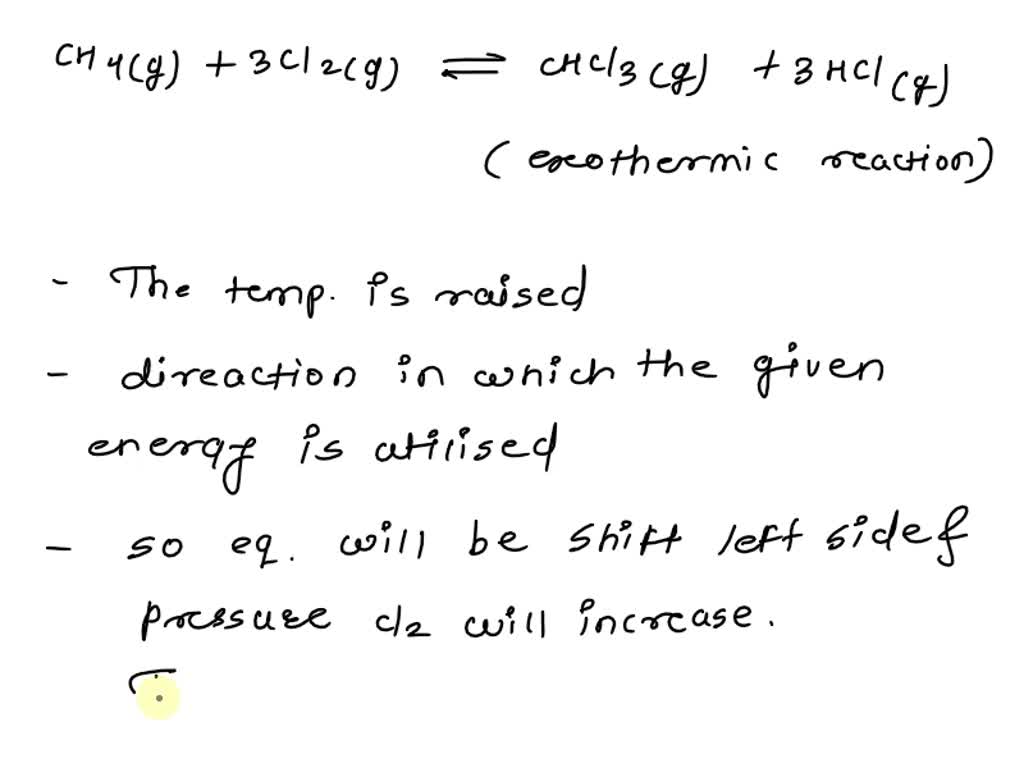 CH4(g) + 3Cl2(g) ⇌ CHCl3(g) + 3HCl(g)
(exothermic reaction)
- The temp. is raised
- direaction in which the given
energy is utilised
- so eq. will be shift left side f
pressure cl2 will increase.